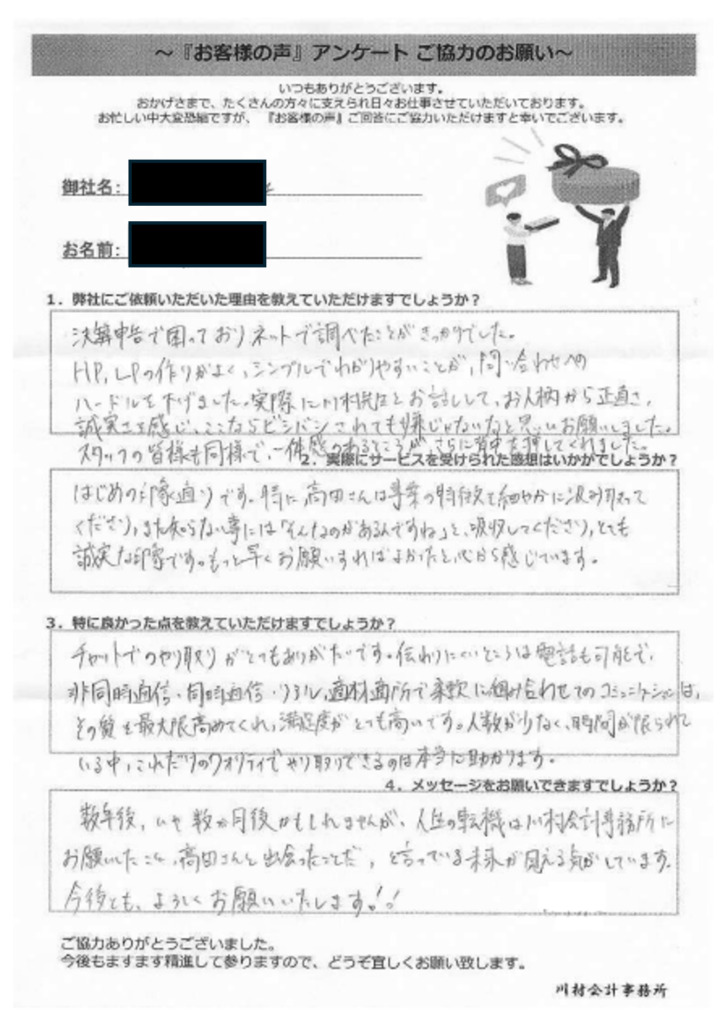 ～『お客様の声』アンケート ご協力のお願い～
いつもありがとうございます。
おかげさまで、たくさんの方々に支えられ日々お仕事させていただいております。
お忙しい中大変恐縮ですが、『お客様の声』ご回答にご協力いただけますと幸いでございます。
御社名：
お名前：
1．弊社にご依頼いただいた理由を教えていただけますでしょうか？
決算申告で困っておりネットで調べたことがきっかけでした。
HP、LPの作りがよく、シンプルでわかりやすいことが、問い合わせへの
ハードルを下げました。実際に川村先生とお話しして、お人柄から正直さ、
誠実さを感じ、ここならビシバシされても嫌じゃないなと思いお願いしました。
スタッフの皆様も同様で、一体感のあるところが、さらに背中を押してくれました。
2．実際にサービスを受けられた感想はいかがでしょうか？
はじめの印象通りです。特に高田さんは事業の特徴を細やかに汲み取って
くださり、また知らない事には「そんなのがあるんですね」と、吸収してくださり、とても
誠実な印象です。もっと早くお願いすればよかったと心から感じています。
3．特に良かった点を教えていただけますでしょうか？
チャットでのやり取りがとてもありがたいです。伝わりにくいところは電話も可能で、
非同時通信・同時通信・リアル、適材適所で柔軟に組み合わせてのコミュニケーションは、
その質を最大限高めてくれ、満足度がとても高いです。人数が少なく、時間が限られて
いる中、これだけのクオリティでやり取りできるのは本当に助かります。
4．メッセージをお願いできますでしょうか？
数年後、いや数か月後かもしれませんが、人生の転機は川村会計事務所に
お願いしたこと、高田さんと出会ったことだ、と言っている未来が見える気がしています。
今後とも、よろしくお願いいたします！！
ご協力ありがとうございました。
今後もますます精進して参りますので、どうぞ宜しくお願い致します。
川村会計事務所